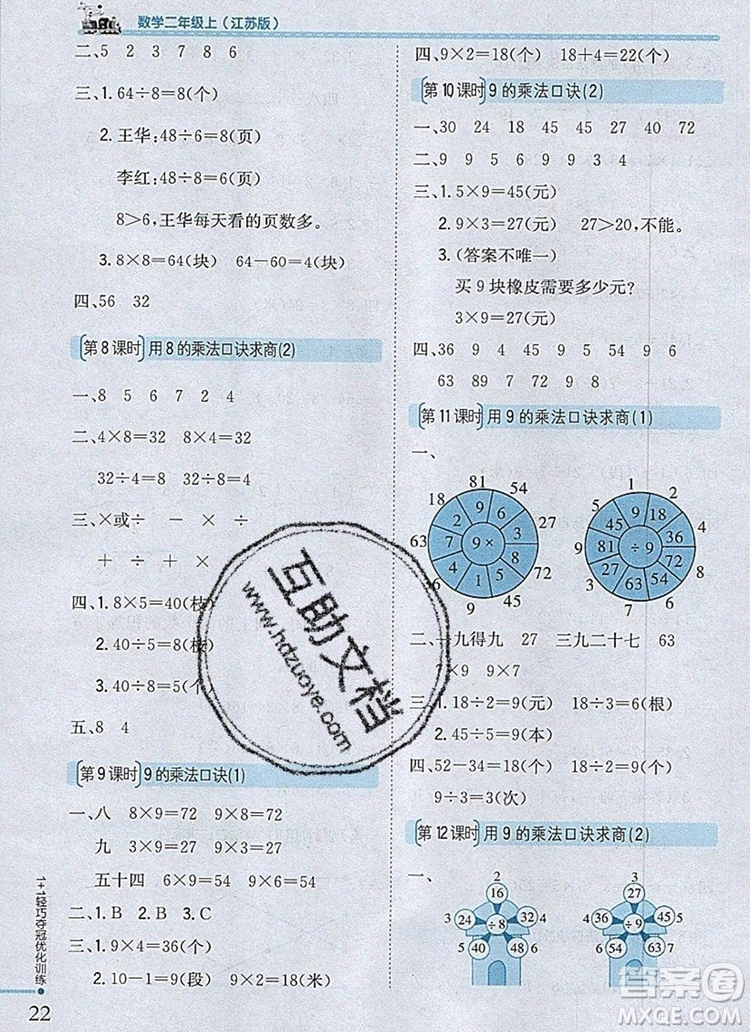 数学二年级上(江苏版)
二、5 2 3 7 8 6
三、1. 64÷8=8(个)
2. 王华:48÷6=8(页)
李红:48÷8=6(页)
8>6,王华每天看的页数多。
3. 8×8=64(块)
四、56 32
第8课时 用8的乘法口诀求商(2)
一、8 5 6 7 2 4
二、4×8=32 8×4=32
32÷4=8 32÷8=4
三、×或÷ - × -
÷ - + × +
四、1. 8×5=40(枝)
2. 40÷5=8(枝)
3. 40÷8=5(个)
五、8 4
第9课时 9的乘法口诀(1)
一、八 8×9=72 9×8=72
九 3×9=27 9×3=27
五十四 6×9=54 9×6=54
二、1. B 2. B 3. C
三、1. 9×4=36(个)
2. 10-1=9(段) 9×2=18(米)
1+1轻巧夺冠优化训练
22
四、9×2=18(个) 18+4=22(个)
第10课时 9的乘法口诀(2)
一、30 24 18 45 45 27 40 72
二、9 9 9 5 9 9 3 4
三、1. 5×9=45(元)
2. 9×3=27(元) 27>20,不能。
3. (答案不唯一)
买9块橡皮需要多少元?
3×9=27(元)
四、36 9 4 45 9 5 54 9 6
63 89 7 72 9 8
第11课时 用9的乘法口诀求商(1)
一、
81 54 27 72 45 9 36 63 18
9 6 3 8 5 1 4 7 2
9×
1 2 4 8 6 7 3 9 5
9 18 36 72 54 63 27 81 45
÷9
二、一九得九 27 三九二十七 63
7×9 9×7
三、1. 18÷2=9(元) 18÷3=6(根)
2. 45÷5=9(本)
四、52-34=18(个) 18÷2=9(个)
9÷3=3(次)
第12课时 用9的乘法口诀求商(2)
一、
2 3 4 5 6
16 24 32 40 48
÷8
3 4 5 6 7
27 36 45 54 63
÷9
互助文档
www.hdzuoye.com
答案圈
MXQE.COM